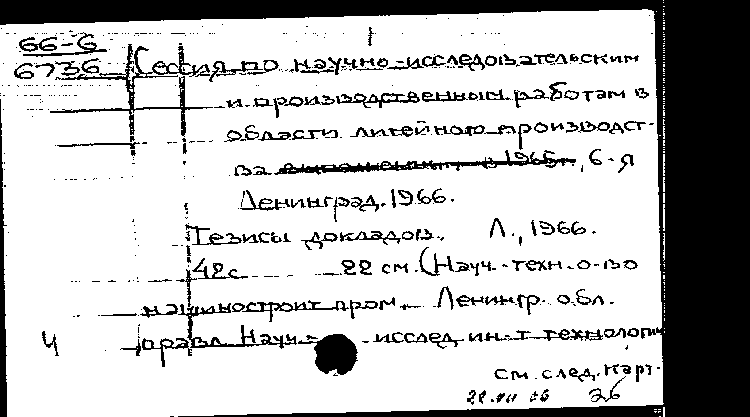 66-6
6736 Сессия по научно-исследовательским
и производственным работам в
области литейного производст-
ва выполненн. в 1965г., 6-я
Ленинград. 1966.
Тезисы докладов. Л., 1966.
42 с. 22 см. (Науч.-техн. о-во
машиностроит пром. Ленингр. обл.
правл. Науч.- исслед. ин-т технологии
см. след. карт.
26